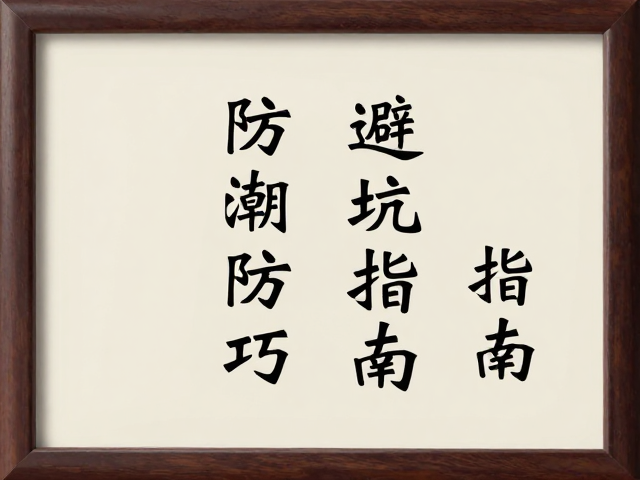 指南
避坑指南
防潮防巧